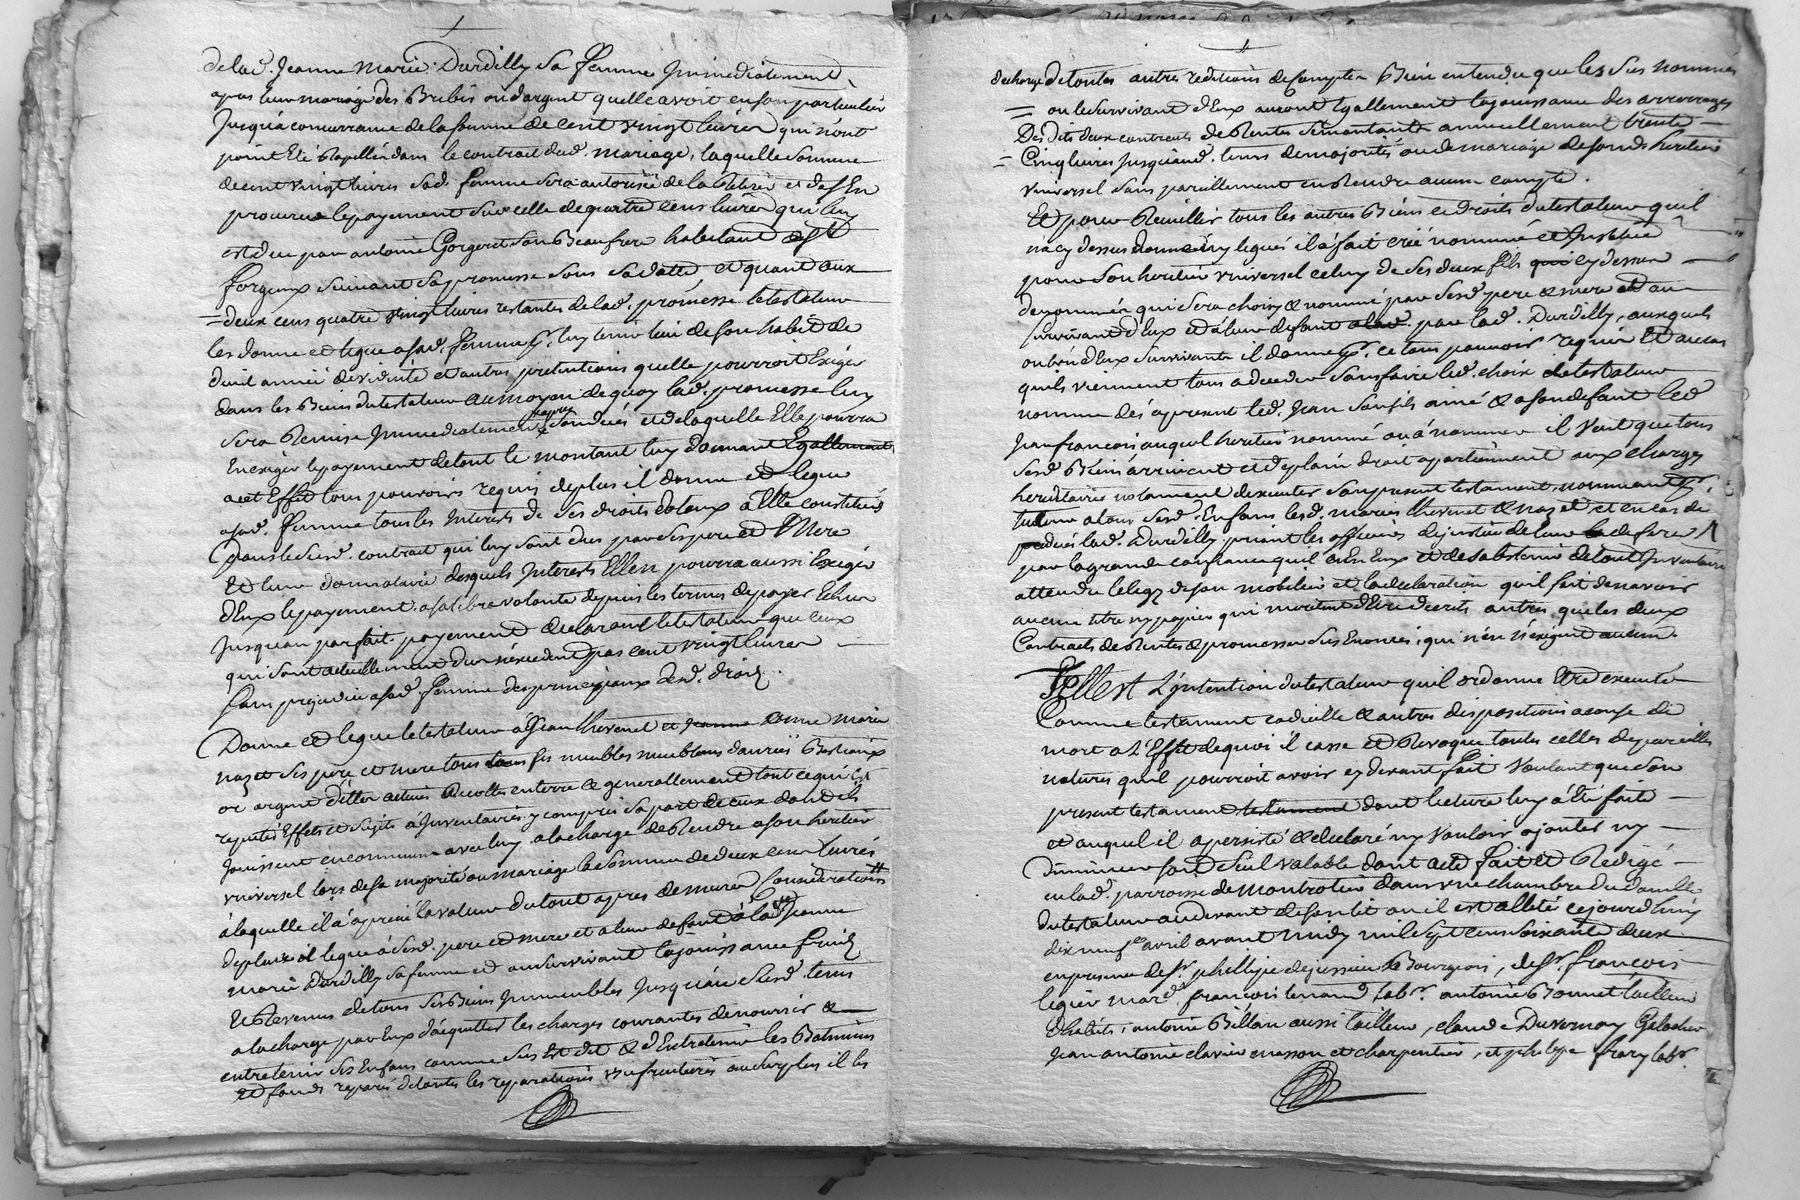 delad. Jeanne Marie Durdilly sa femme Immediatement
apres leur mariage des Brebis ou d'argent quelle avoit en son particulier
Jusqu'a concurrance de la somme de cent vingt livres qui n'ont
point Eté Rapellée dans le contrat dud. mariage, laquelle somme
de cent vingt livres sad. femme sera autorisée de la Retirer et des En
procurer le payement sur celle de quatre cens livres qui luy
est due par antoine Gorgeret son Beaufrere habitant de St
forgeux suivant sa promesse sous sa datte, et quant aux
deux cens quatre vingt livres restantes de lad. promesse le testateur
les donne et legue a sad. femme pr. luy tenir lieu de son habit de
deuil année de viduité et autres pretentions quelle pourroit Exiger
dans les Biens du testateur au moyen de quoy lad. promesse luy
sera Remise Immediatement apres son decés et de laquelle Elle pourra
En exiger le payement de tout le montant luy donnant Egallement
a cet Effet tous pouvoirs requis de plus il donne et legue
a sad. femme tous les Interets de ses droits dotaux a Elle constitués
dans le susd. contrat qui luy sont dus par ses pere et Mere
Et leur donnataire desquels Interets Elle en pourra aussi Exiger
d'Eux le payement a sa libre volonté depuis les termes de payer Echus
Jusqu'au parfait payement declarant le testateur que ceux
qui sont actuellement dus n'excedent pas cent vingt livres
sans prejudice a sad. femme des principaux desd. droits.
Donne et legue le testateur à Jean thevenet et Jeanne Marie
nazet ses pere et mere tous ses meubles meublans danrées Bestiaux
or argent dettes actives Recoltes en terre & generallement tout ce qui Est
reputé Effets et sujets a Inventaires y compris sa part de ceux dont ils
Jouissent en commun avec luy a la charge de Rendre a son heritier
vniversel lors de sa majorité ou mariage la somme de deux cens livres
à laquelle il a aprecié la valeur du tout apres de mures Considerations
de plus il legue à sesd. pere et mere et a leur defaut à lad. Jeanne
marie Durdilly sa femme et au survivant la jouissance fruits
Et Revenus de tous ses Biens Immeubles Jusqu'au susd. tems
a la charge par Eux d'acquitter les charges courantes de nourrir &
entretenir ses Enfans comme sus Est dit & d'Entretenir les Batimens
Et fonds reparés de toutes les reparations vsufruitieres au surplus il les
decharge de toutes autres redditions de comptes Bien entendu que les sus nommés
ou le survivant d'Eux auront Egallement la jouissance des arrerages
Des dits deux contrats de Rentes se montants annuellement trente
Cinq livres Jusqu'aud. tems de majorité ou de mariage de sond. heritier
vniversel sans pareillement en Rendre aucun compte.
Et pour Receuillir tous les autres Biens et droits du testateur qu'il
n'a cy dessus donné ny legués il a fait créé nommé et Institué
pour son heritier vniversel celuy de ses deux fils cy dessus
denommés qui sera choisy & nommé par sesd. pere & mere et au
survivant d'Eux et a leur defaut par lad. Durdilly, auxquels
ou l'un d'Eux survivants il donne pr. ce tous pouvoirs requis Et au cas
quils viennent tous a deceder sans faire led. choix le testateur
nomme dés apresent led. Jean son fils ainé & a son defaut led
Jean françois auquel heritier nommé ou à nommer il veut que tous
sesd. Biens arrivent et de plain droit apartiennent aux charges
hereditaires notamment d'executer son present testament nommant pr.
tuteurs a tous sesd. Enfans lesd. mariés thevenet & nazet et en cas de
predecés lad. Durdilly priant les officiers de justice de leur deferer
par la grande confiance qu'il a En Eux et de s'abstenir de tout Inventaire
attendu le legs de son mobilier et la declaration qu'il fait de n'avoir
aucun titre ny papier qui meritent d'Etre decrits autres que les deux
Contracts de Rentes & promesse sus Enoncés; qui n'en n'exigent aucun.
Telle est L'intention du testateur qu'il ordonne Etre executé
Comme testament codicille & autres dispositions a cause de
mort a L'Effet de quoi il casse et Revoque toutes celles de pareilles
natures qu'il pourroit avoir cy devant fait voulant que son
present testament testament dont lecture luy a été faite
et auquel il a persisté & declaré ny vouloir ajouter ny
diminuer soit seul valable dont acte fait et Redigé
en lad. parroisse de Montrotier dans vne chambre du domicille
du testateur au devant de son lit ou il est alleté cejourd'huy
dix neufe. avril avant midy mil sept cens soixante deux
en presence de Sr. phillipe dejussieu Bourgeois, de Sr. françois
legier mard. françois tenand labr. antoine Bonnet tailleur
d'habits, antoine Billon aussi tailleur, claude Duvernay
Jean antoine clavier masson et charpentier, et philippe frary labr.